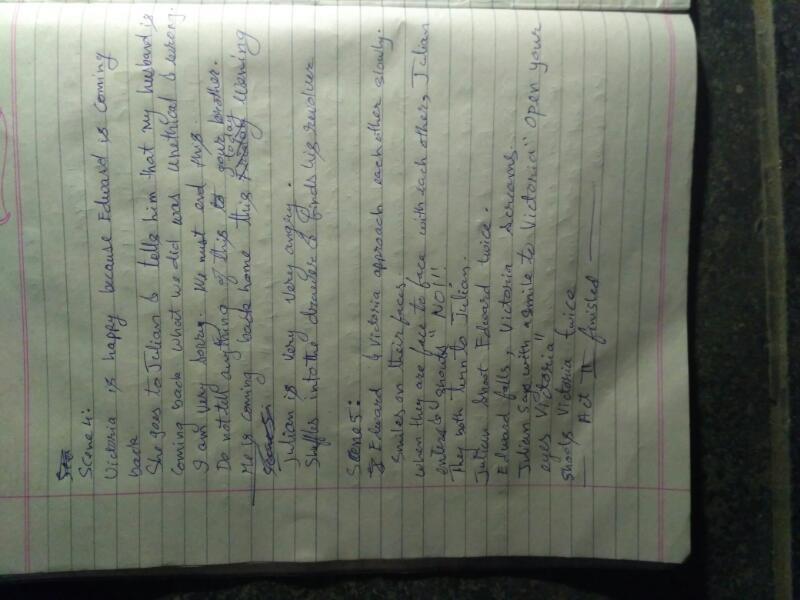 Scene 4:
Victoria is happy because Edward is coming
back
She goes to Julian & tells him that my husband is
coming back what we did was unethical & wrong.
I am very sorry. We must end this
Do not tell anything of this to your brother.
today
He is coming back home this evening
Julian is very very angry.
Shuffles into the drawer & finds his revolver
Scene 5:
Edward & Victoria approach each other slowly.
Smiles on their faces
when they are face to face with each other, Julian
enters & shouts "NO!!"
They both turn to Julian.
Julian shoot Edward twice.
Edward falls, Victoria Screams.
Julian Says with a smile to Victoria "Open your
eyes Victoria"
Shoots Victoria twice
Act II finished